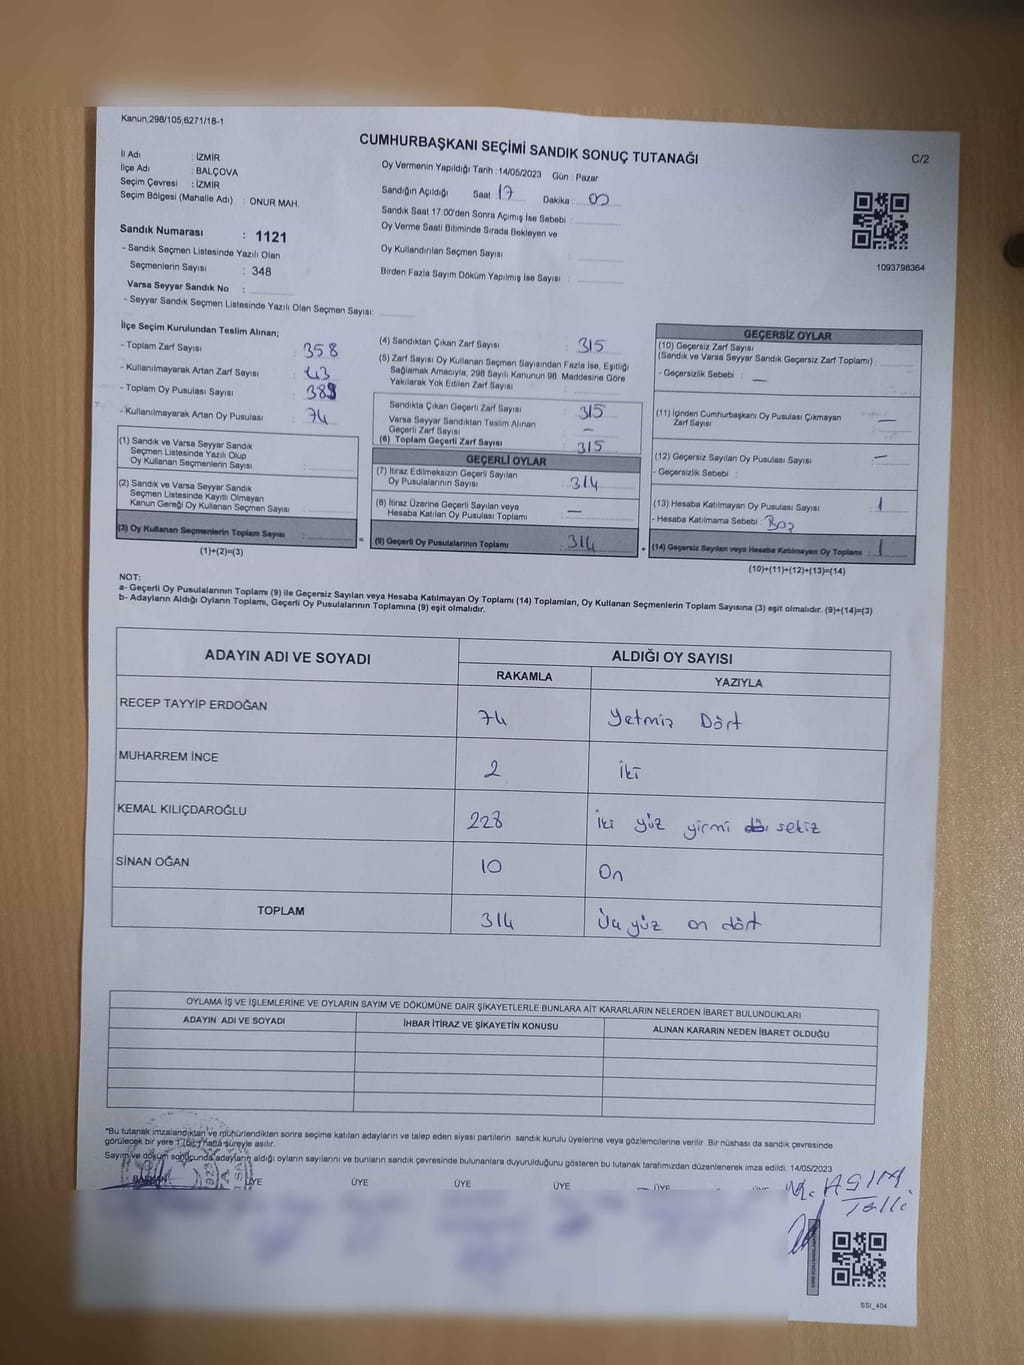 Kanun;298/105,6271/18-1
CUMHURBAŞKANI SEÇİMİ SANDIK SONUÇ TUTANAĞI
C/2
İl Adı : İZMİR
İlçe Adı : BALÇOVA
Seçim Çevresi : İZMİR
Seçim Bölgesi (Mahalle Adı) : ONUR MAH.
Sandık Numarası : 1121
- Sandık Seçmen Listesinde Yazılı Olan
Seçmenlerin Sayısı : 348
Varsa Seyyar Sandık No :
- Seyyar Sandık Seçmen Listesinde Yazılı Olan Seçmen Sayısı:
Oy Vermenin Yapıldığı Tarih :14/05/2023 Gün : Pazar
Sandığın Açıldığı Saat : 17 Dakika : 00
Sandık Saat 17:00'den Sonra Açımış İse Sebebi :
Oy Verme Saati Bitiminde Sırada Bekleyen ve
Oy Kullandırılan Seçmen Sayısı :
Birden Fazla Sayım Döküm Yapılmış İse Sayısı :
1093798364
İlçe Seçim Kurulundan Teslim Alınan;
- Toplam Zarf Sayısı : 358
- Kullanılmayarak Artan Zarf Sayısı : 43
- Toplam Oy Pusulası Sayısı : 388
- Kullanılmayarak Artan Oy Pusulası : 74
(1) Sandık ve Varsa Seyyar Sandık
Seçmen Listesinde Yazılı Olup
Oy Kullanan Seçmenlerin Sayısı :
(2) Sandık ve Varsa Seyyar Sandık
Seçmen Listesinde Kayıtlı Olmayan
Kanun Gereği Oy Kullanan Seçmen Sayısı :
(3) Oy Kullanan Seçmenlerin Toplam Sayısı :
(1)+(2)=(3)
(4) Sandıktan Çıkan Zarf Sayısı : 315
(5) Zarf Sayısı Oy Kullanan Seçmen Sayısından Fazla İse, Eşitliği
Sağlamak Amacıyla, 298 Sayılı Kanunun 98. Maddesine Göre
Yakılarak Yok Edilen Zarf Sayısı :
Sandıkta Çıkan Geçerli Zarf Sayısı : 315
Varsa Seyyar Sandıktan Teslim Alınan
Geçerli Zarf Sayısı : —
(6) Toplam Geçerli Zarf Sayısı : 315
GEÇERLİ OYLAR
(7) İtiraz Edilmeksizin Geçerli Sayılan
Oy Pusulalarının Sayısı : 314
(8) İtiraz Üzerine Geçerli Sayılan veya
Hesaba Katılan Oy Pusulası Toplamı : —
(9) Geçerli Oy Pusulalarının Toplamı : 314
GEÇERSİZ OYLAR
(10) Geçersiz Zarf Sayısı
(Sandık ve Varsa Seyyar Sandık Geçersiz Zarf Toplamı) :
- Geçersizlik Sebebi : —
(11) İçinden Cumhurbaşkanı Oy Pusulası Çıkmayan
Zarf Sayısı : —
(12) Geçersiz Sayılan Oy Pusulası Sayısı : —
- Geçersizlik Sebebi :
(13) Hesaba Katılmayan Oy Pusulası Sayısı : 1
- Hesaba Katılmama Sebebi : Boş
(14) Geçersiz Sayılan veya Hesaba Katılmayan Oy Toplamı : 1
(10)+(11)+(12)+(13)=(14)
NOT:
a- Geçerli Oy Pusulalarının Toplamı (9) ile Geçersiz Sayılan veya Hesaba Katılmayan Oy Toplamı (14) Toplamları, Oy Kullanan Seçmenlerin Toplam Sayısına (3) eşit olmalıdır. (9)+(14)=(3)
b- Adayların Aldığı Oyların Toplamı, Geçerli Oy Pusulalarının Toplamına (9) eşit olmalıdır.
ADAYIN ADI VE SOYADI ALDIĞI OY SAYISI
RAKAMLA YAZIYLA
RECEP TAYYİP ERDOĞAN 74 Yetmiş Dört
MUHARREM İNCE 2 İki
KEMAL KILIÇDAROĞLU 228 İki yüz yirmi sekiz
SİNAN OĞAN 10 On
TOPLAM 314 Üç yüz on dört
OYLAMA İŞ VE İŞLEMLERİNE VE OYLARIN SAYIM VE DÖKÜMÜNE DAİR ŞİKAYETLERLE BUNLARA AİT KARARLARIN NELERDEN İBARET BULUNDUKLARI
ADAYIN ADI VE SOYADI İHBAR İTİRAZ VE ŞİKAYETİN KONUSU ALINAN KARARIN NEDEN İBARET OLDUĞU
*Bu tutanak imzalandıktan ve mühürlendikten sonra seçime katılan adayların ve talep eden siyasi partilerin sandık kurulu üyelerine veya gözlemcilerine verilir. Bir nüshası da sandık çevresinde
görülecek bir yere 1 (bir) hafta süreyle asılır.
Sayım ve döküm sonucunda adayların aldığı oyların sayılarını ve bunların sandık çevresinde bulunanlara duyurulduğunu gösteren bu tutanak tarafımızdan düzenlenerek imza edildi. 14/05/2023
BAŞKAN ÜYE ÜYE ÜYE ÜYE ÜYE
SSI_404